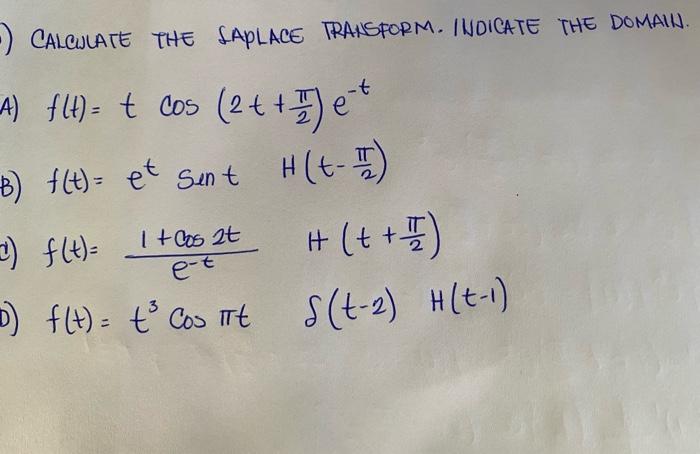 ) CALCULATE THE LAPLACE TRANSFORM. INDICATE THE DOMAIN.
A) f(t) = t cos (2t + π/2) e^-t
B) f(t) = e^t sen t H(t - π/2)
c) f(t) = 1 + cos 2t / e^-t H(t + π/2)
D) f(t) = t^3 cos πt δ(t-2) H(t-1)